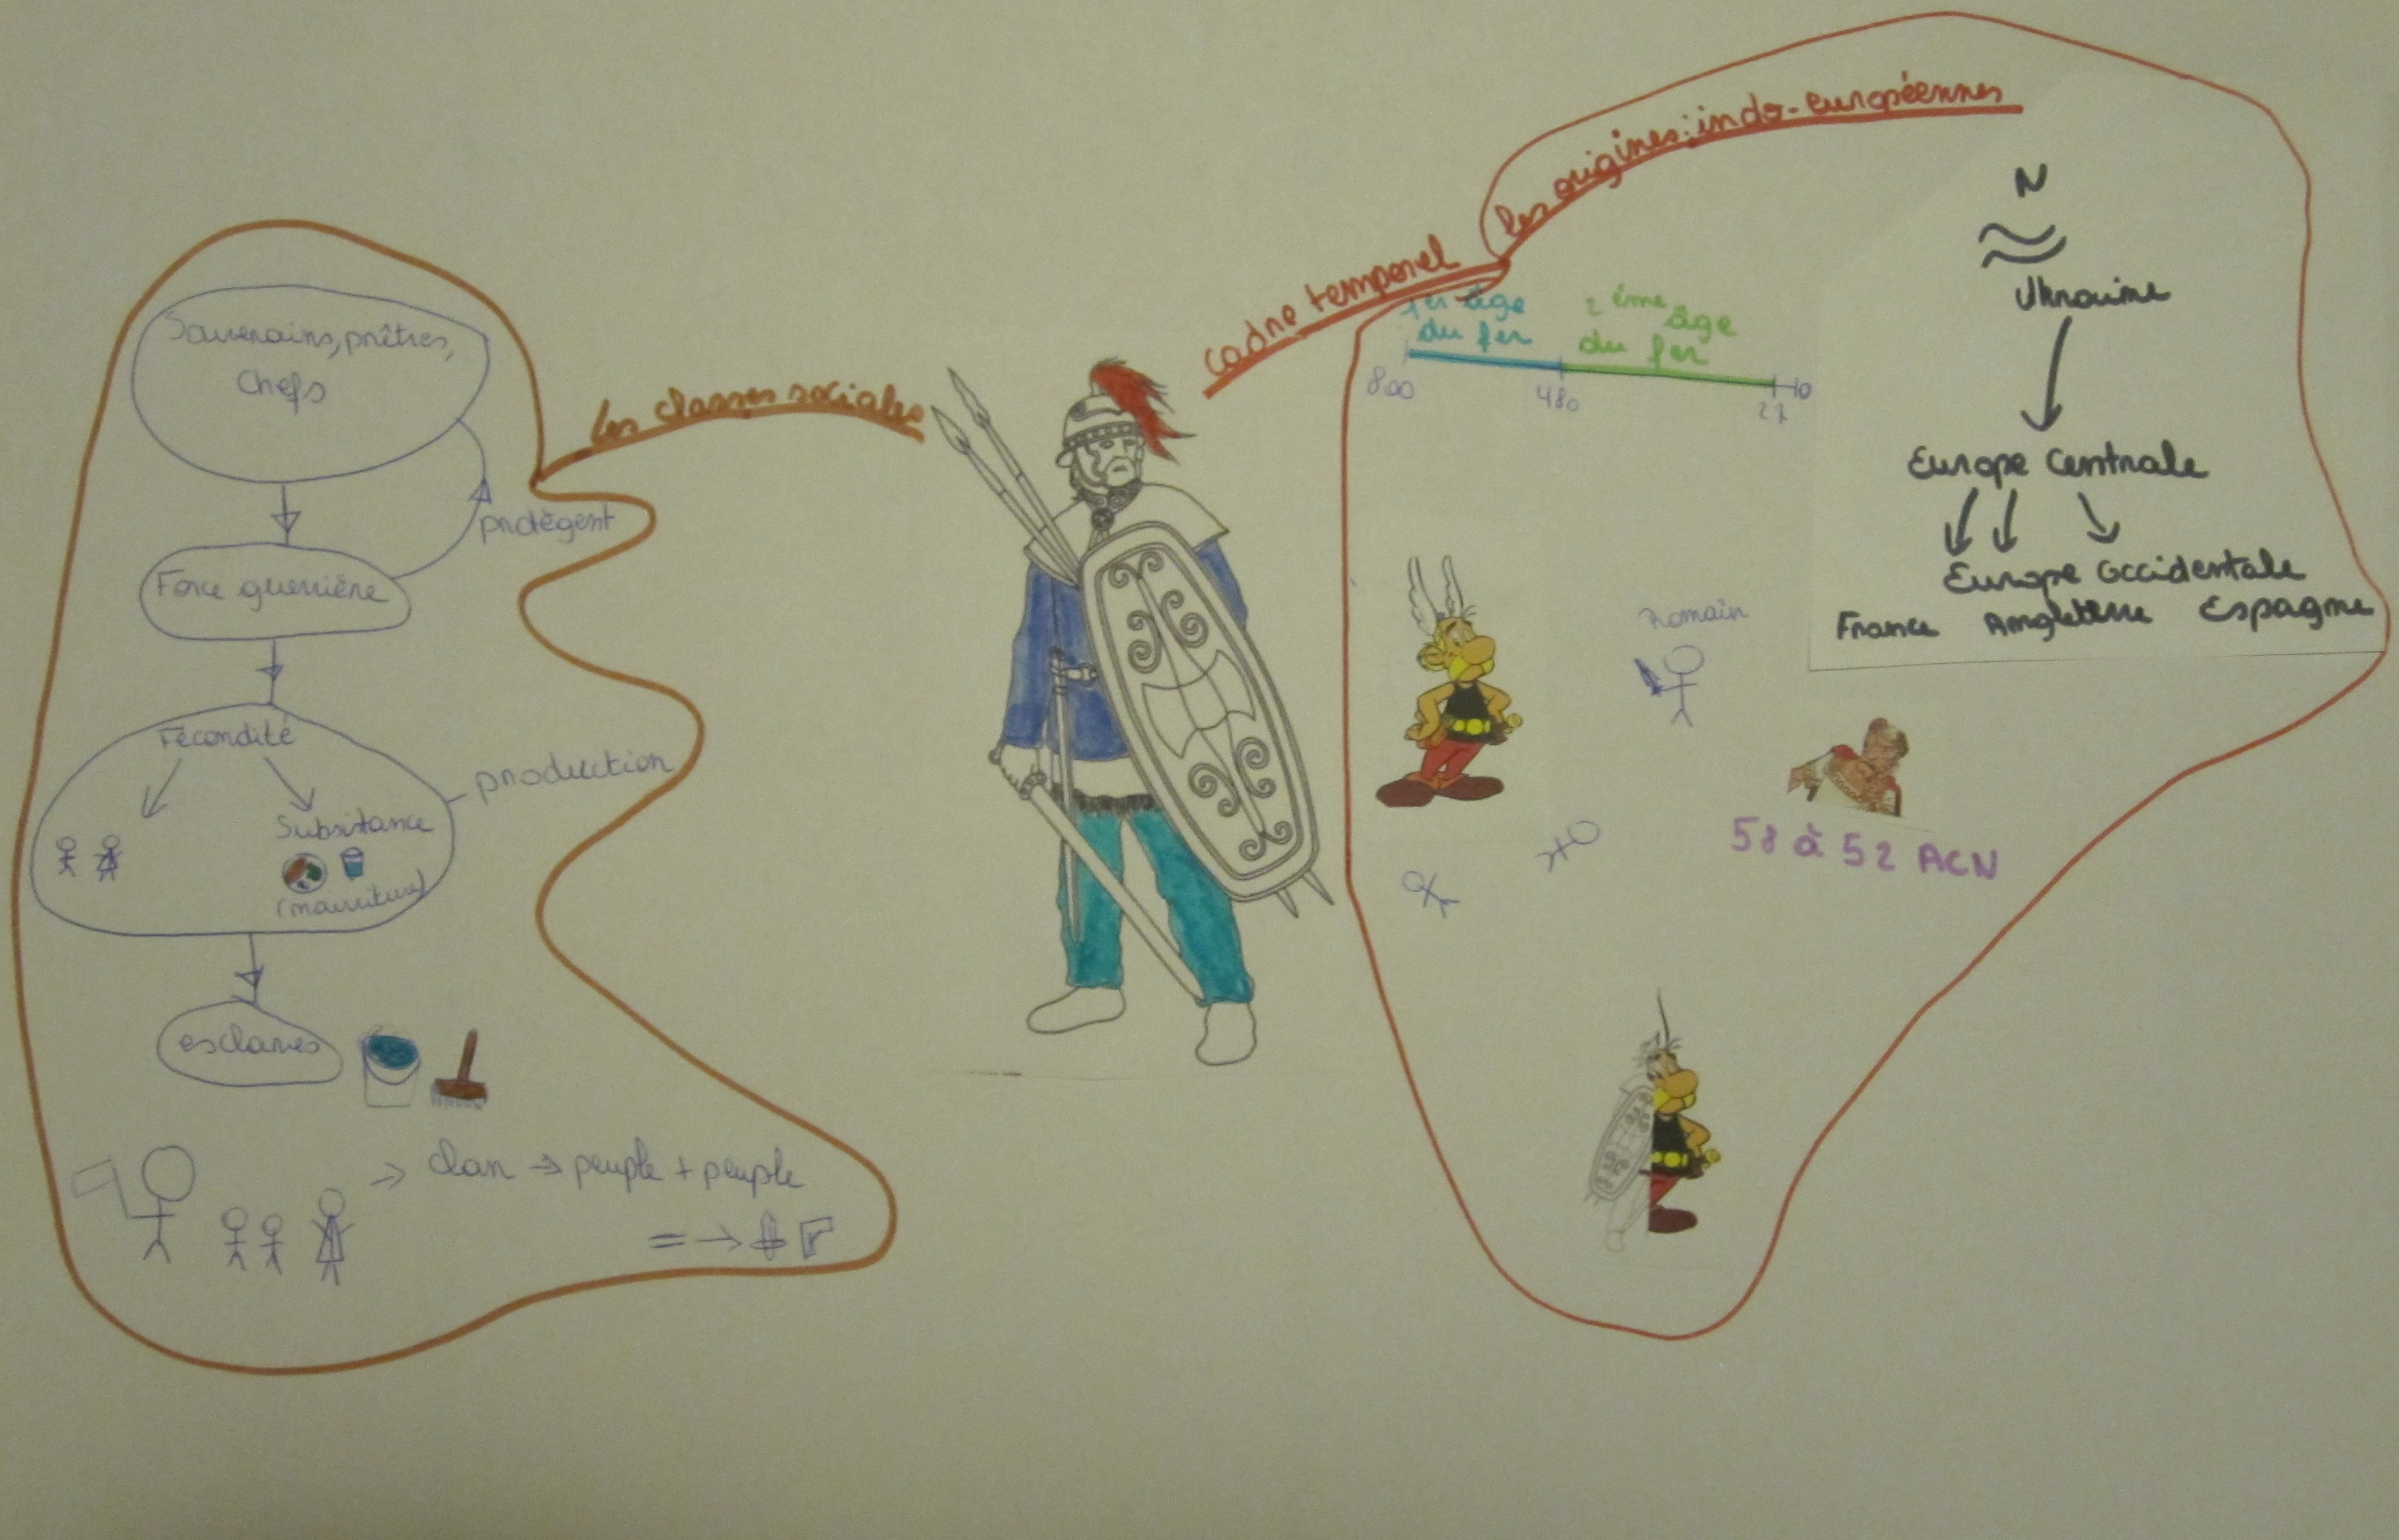 les classes sociales
Souverains, prêtres,
Chefs
protègent
Force guerrière
Fécondité
production
Subsistance
(nourriture)
esclaves
→ clan → peuple + peuple
= →
cadre temporel
les origines: indo-européennes
1er âge
du fer
2ème âge
du fer
800
480
27
0
N
Ukraine
Europe Centrale
Europe Occidentale
France Angleterre Espagne
Romain
58 à 52 ACN